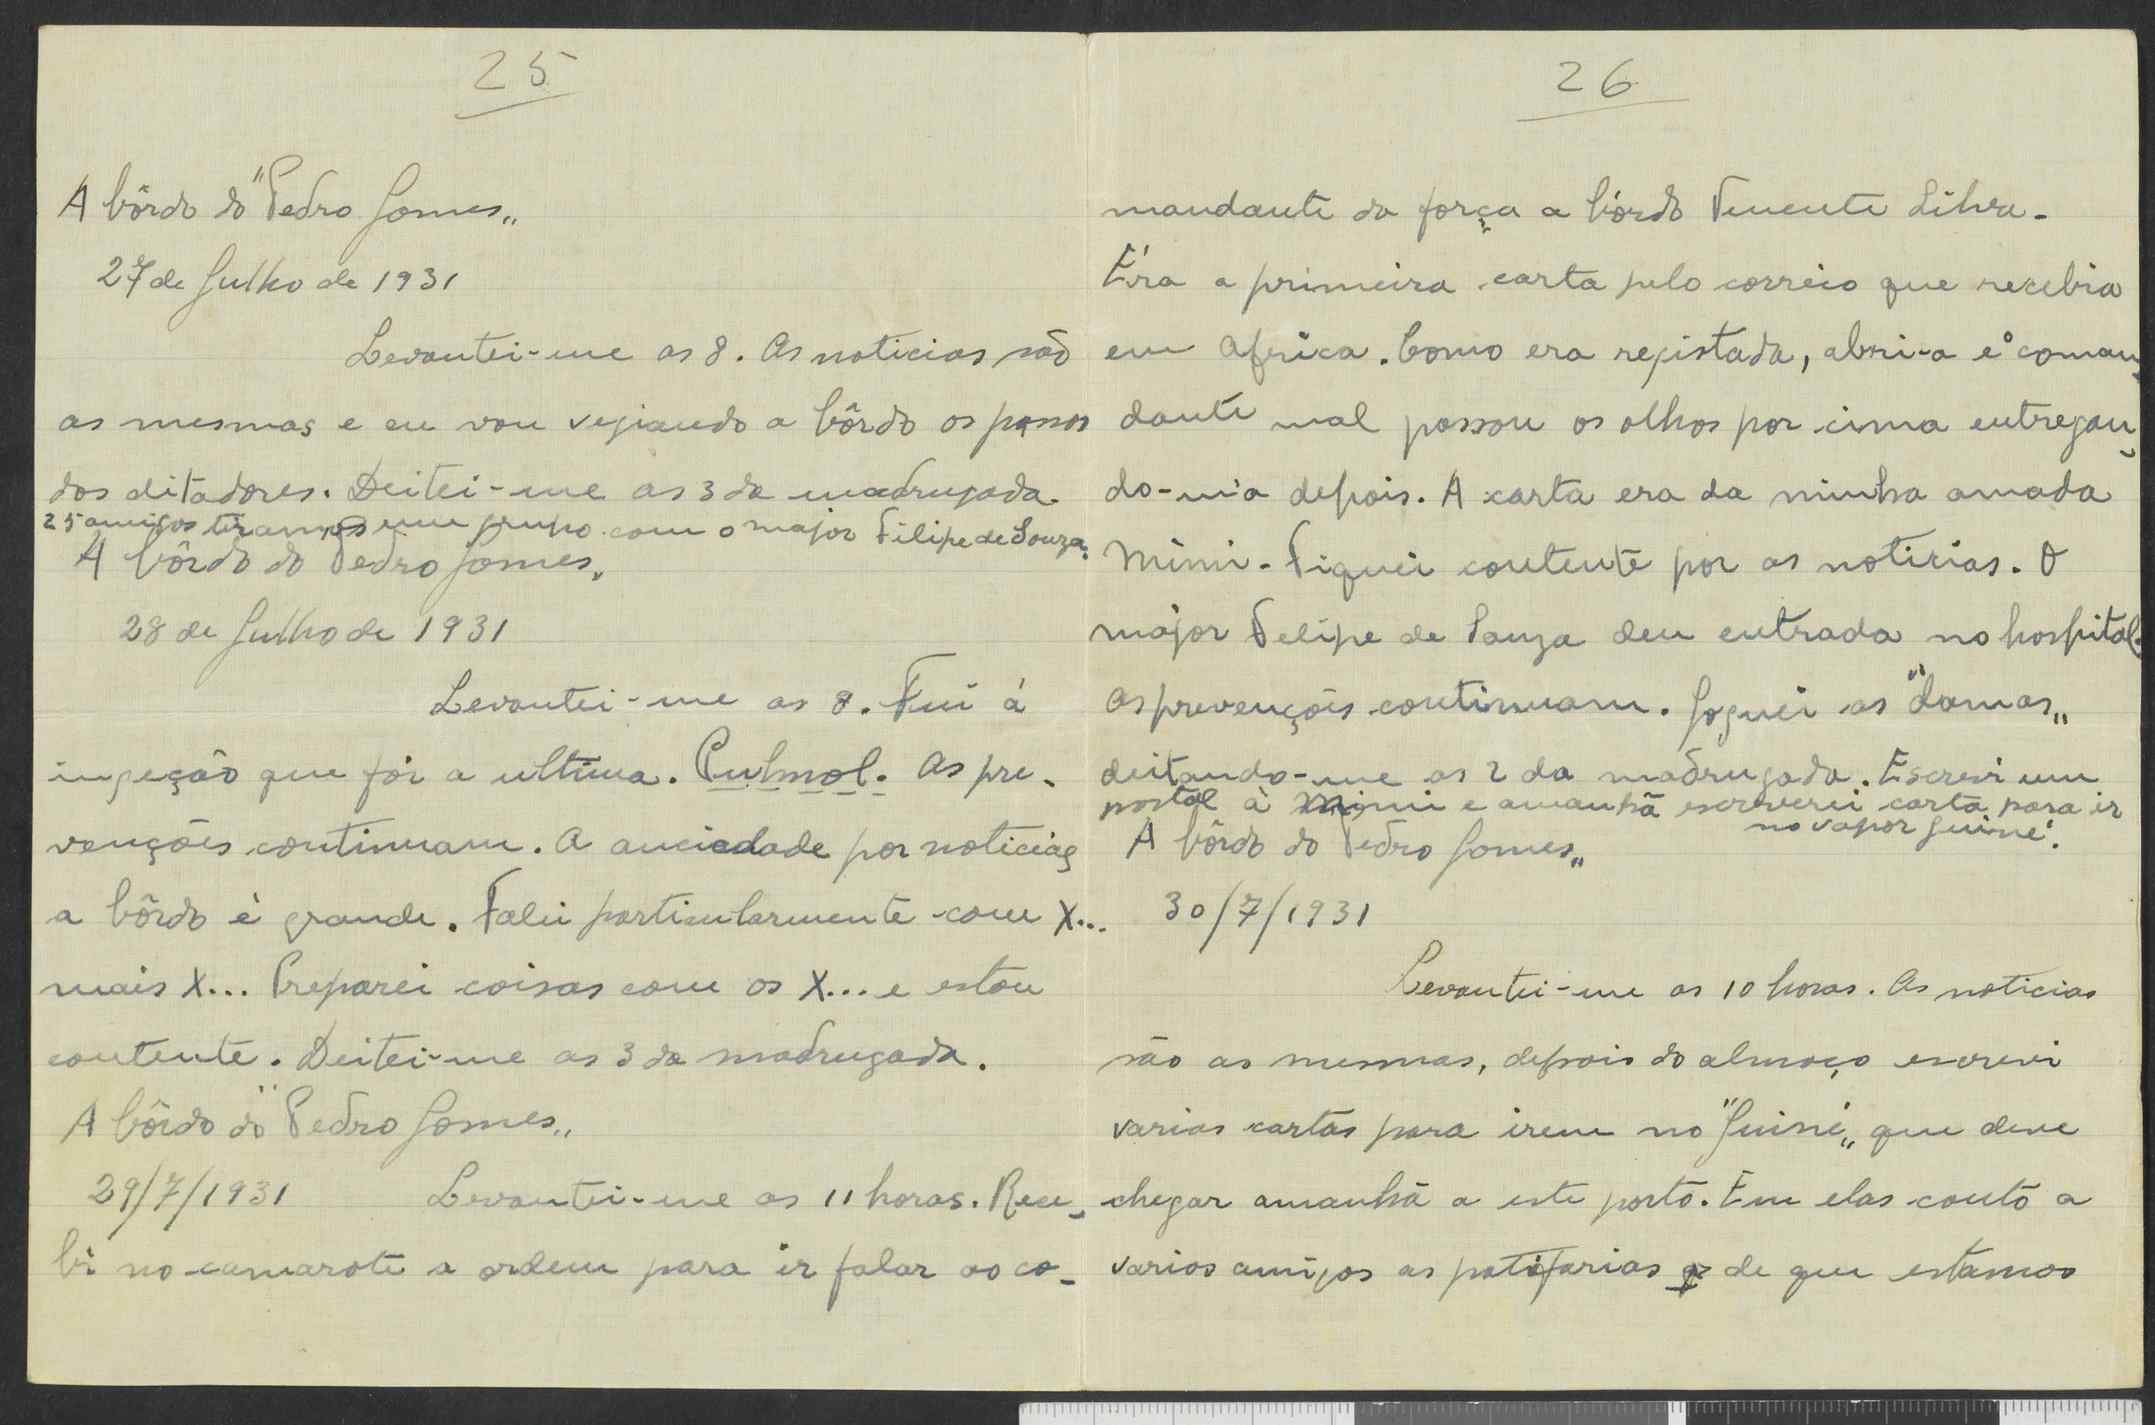 25
A bôrdo do "Pedro Gomes„
27 de Julho de 1931
Levantei-me as 8. As noticias são
as mesmas e eu vou vegiando a bôrdo os passos
dos ditadores. Deitei-me as 3 da madrugada.
25 amigos tiramos um grupo com o major Filipe de Souza.
A bôrdo do Pedro Gomes„
28 de Julho de 1931
Levantei-me as 8. Fui á
injeção que foi a ultima. Pulmol. As pre-
venções continuam. A anciedade por noticias
a bôrdo é grande. Falei particularmente com X...
mais X... Preparei coisas com os X... e estou
contente. Deitei-me as 3 da madrugada.
A bôrdo do "Pedro Gomes„
29/7/1931 Levantei-me as 11 horas. Rece-
bi no camarote a ordem para ir falar ao co-
26
mandante da força a bórdo Tenente Silva.
Éra a primeira carta pelo correio que recebia
em Africa. Como era registada, abri-a e o coman-
dante mal passou os olhos por cima entregan-
do-mia depois. A carta era da minha amada
Mimi. Fiquei contente por as noticias. O
major Felipe de Souza deu entrada no hospital.
As prevenções continuam. Joguei as "damas„
deitando-me as 2 da madrugada. Escrevi um
postal à Mimi e amanhã escreverei carta para ir
no vapor Guiné.
A bôrdo do Pedro Gomes„
30/7/1931
Levantei-me as 10 horas. As noticias
são as mesmas, depois do almoço escrevi
varias cartas para irem no "Guiné„ que deve
chegar amanhã a este porto. Em elas conto a
varios amigos as patifarias de que estamos